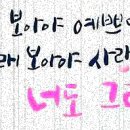 보아야 예쁘
래 보아야 사
너도 그